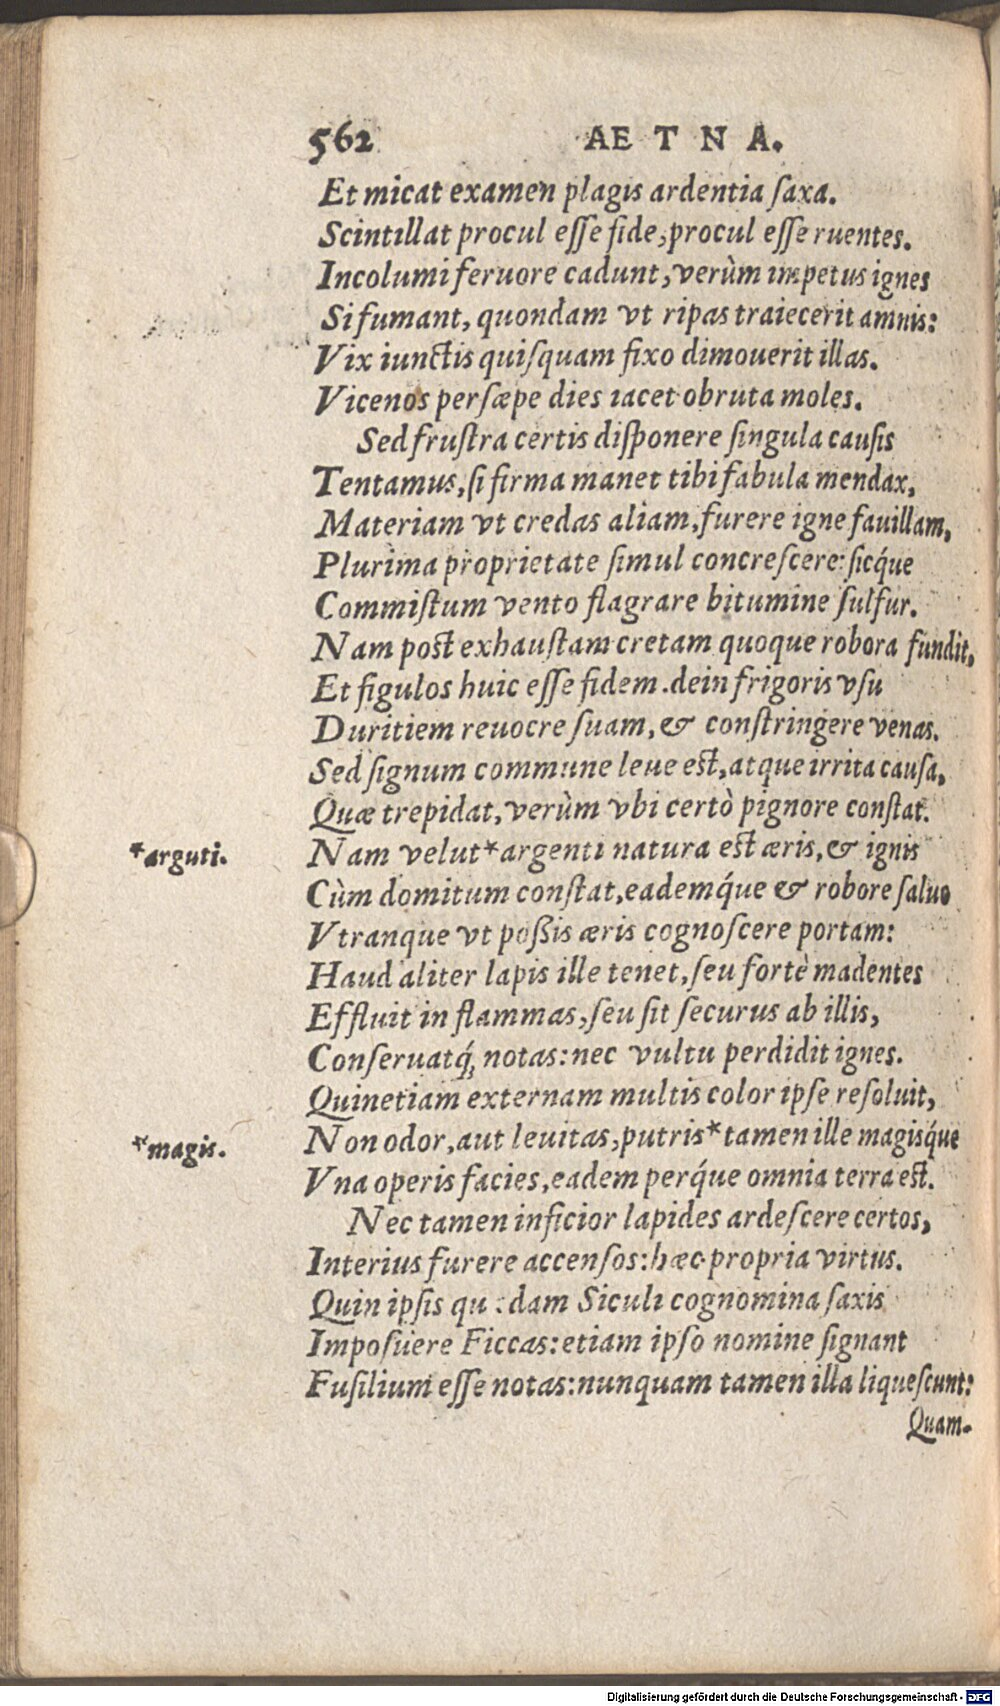 562 AETNA.
Et micat examen plagis ardentia ſaxa.
Scintillat procul eſſe fide, procul eſſe ruentes.
Incolumi feruore cadunt, verùm impetus ignes
Si fumant, quondam vt ripas traiecerit amnis:
Vix iunctis quiſquam fixo dimouerit illas.
Vicenos perſæpe dies iacet obruta moles.
Sed fruſtra certis diſponere ſingula cauſis
Tentamus, ſi firma manet tibi fabula mendax,
Materiam vt credas aliam, furere igne fauillam,
Plurima proprietate ſimul concreſcere: ſicq́ue
Commiſtum vento flagrare bitumine ſulfur.
Nam poſt exhauſtam cretam quoque robora fundit,
Et figulos huic eſſe fidem. dein frigoris vſu
Duritiem reuocre ſuam, & conſtringere venas.
Sed ſignum commune leue eſt, atque irrita cauſa,
Quæ trepidat, verùm vbi certò pignore conſtat.
*arguti.
Nam velut *argenti natura eſt æris, & ignis
Cùm domitum conſtat, eademq́ue & robore ſaluo
Vtranque vt poßis æris cognoſcere portam:
Haud aliter lapis ille tenet, ſeu fortè madentes
Effluit in flammas, ſeu ſit ſecurus ab illis,
Conſeruatq́; notas: nec vultu perdidit ignes.
Quinetiam externam multis color ipſe reſoluit,
*magis.
Non odor, aut leuitas, putris *tamen ille magisq́ue
Vna operis facies, eadem perq́ue omnia terra eſt.
Nec tamen inficior lapides ardeſcere certos,
Interius furere accenſos: hæc propria virtus.
Quin ipſis qu dam Siculi cognomina ſaxis
Impoſuere Ficcas: etiam ipſo nomine ſignant
Fuſilium eſſe notas: nunquam tamen illa liqueſcunt:
Quam-
Digitalisierung gefördert durch die Deutsche Forschungsgemeinschaft - DFG